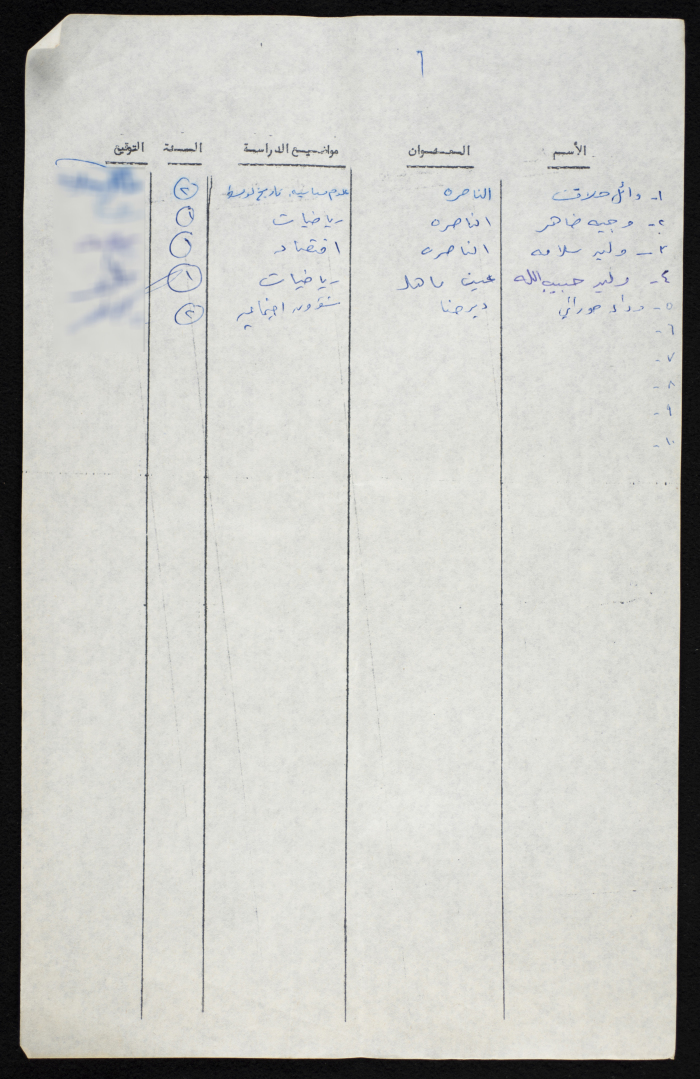 ٦
الأسم العنوان مواضيع الدراسة السنة التوقيع
١- وائل حلاق الناصره علوم سياسيه، تاريخ ٢
٢- وجيه ضاهر الناصره رياضيات ١
٣- وليد سلامه الناصره اقتصاد ١
٤- وليد حبيب الله عين ماهل رياضيات ١
٥- وداد حوراني ديرحنا شؤون اجتماعيه ٢
٦-
٧-
٨-
٩-
١٠-